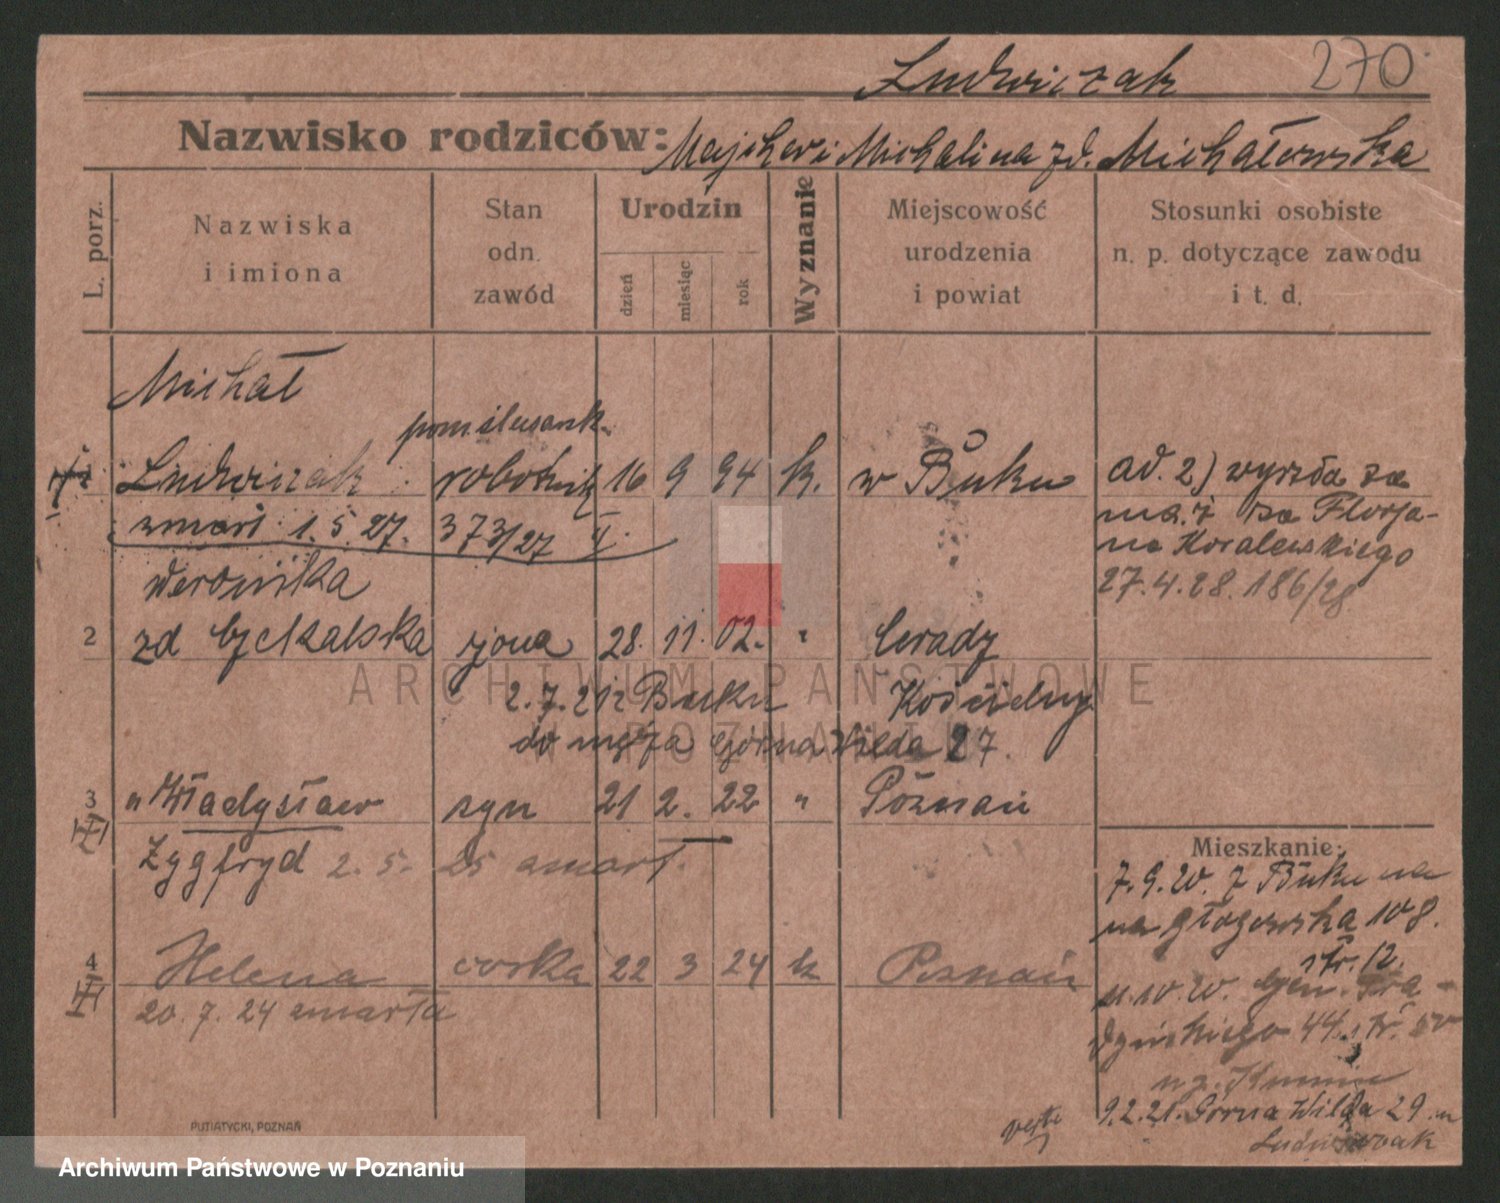 Ludwiczak 270
Nazwisko rodziców: Majcher i Michalina zd. Michałowska
L. porz.
Nazwiska
i imiona
Stan
odn.
zawód
Urodzin
dzień
miesiąc
rok
Wyznanie
Miejscowość
urodzenia
i powiat
Stosunki osobiste
n. p. dotyczące zawodu
i t. d.
Michał
pom ślusarsk.
Ludwiczak robotnik 16 9 94 k. w Buku
zmarł 1. 5. 27. 373/27 II.
ad. 2) wyszła za
mąż za Florja-
na Koralewskiego
27. 4. 28. 186/28
Weronika
2 zd żona 28. 11. 02. " Cerady
2. 7. 21 z Buku Kościelny
do męża Górna Wilda 27.
3 " Władysław syn 21 2. 22 " Poznań
Zygfryd 2. 5. 25 zmarł.
4 Helena córka 22 3 24 k Poznań
20. 7. 24 zmarła
Mieszkanie:
7. 9. 20. z Buku na
na Głogowska 108.
str. 12.
11. 10. 20. Gen. Prą-
dzyńskiego 44. str.
9. 2. 21. Górna Wilda 29
Ludwiczak
verte
PUTIATYCKI, POZNAŃ
ARCHIWUM PAŃSTWOWE
W POZNANIU
Archiwum Państwowe w Poznaniu